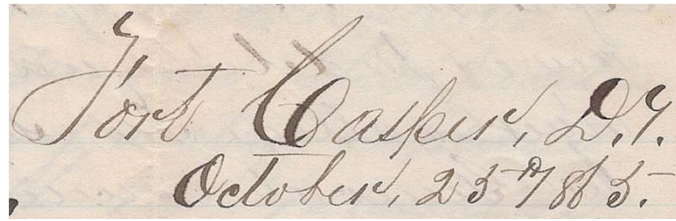 Fort Casper, D.T.
October, 25th 1865.